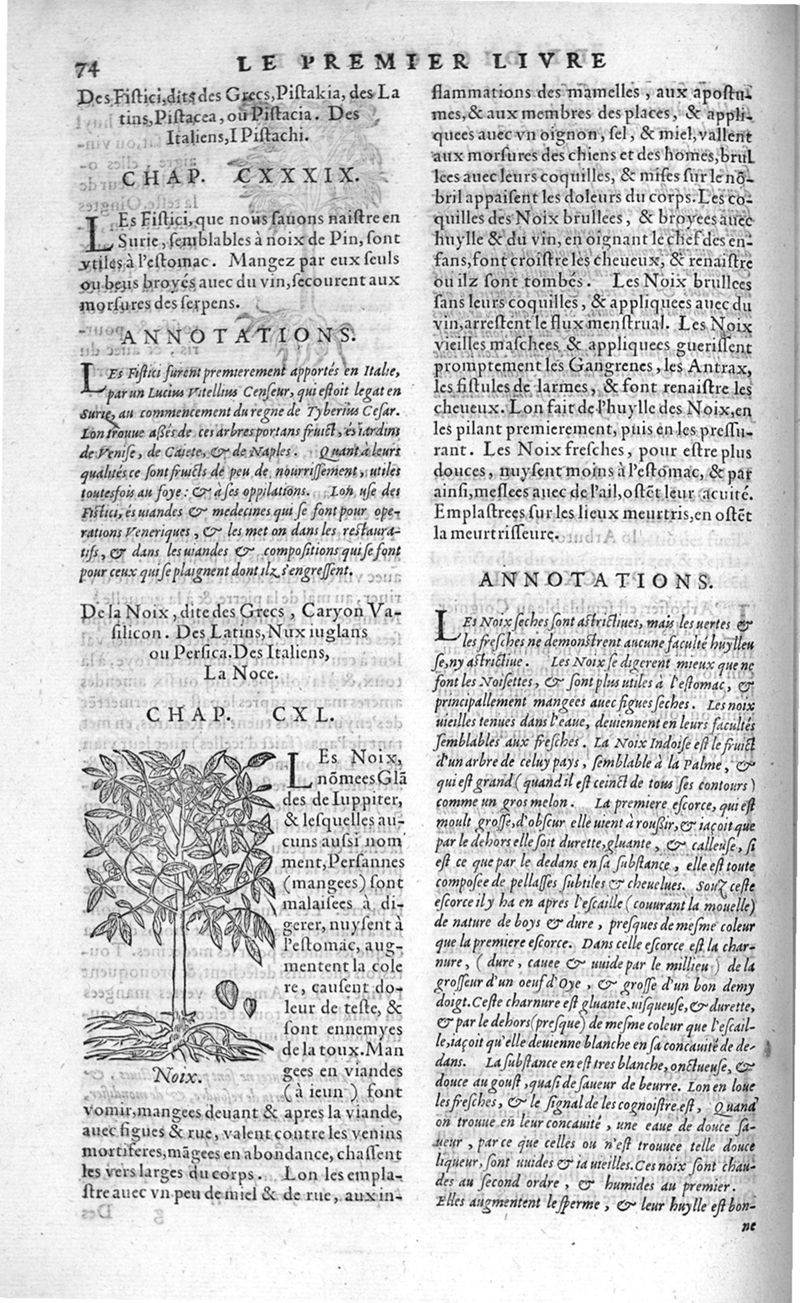 74
LE PREMIER LIVRE
Des Fistici, dits des Grecs, Pistakia, des La
tins, Pistacea, ou Pistacia. Des
Italiens, I Pistachi.
CHAP. CXXXIX.
LEs Fistici, que nous sauons naistre en
Surie, semblables à noix de Pin, sont
vtiles à l'estomac. Mangez par eux seuls
ou beus broyés auec du vin, secourent aux
morsures des serpens.
ANNOTATIONS.
LEs Fistici furent premierement apportés en Italie,
par un Lucius Vitellius Censeur, qui estoit legat en
Surie, au commencement du regne de Tyberius Cesar.
Lon trouue assés de ces arbres portans fruict, és iardins
de Venise, de Caiete, & de Naples. Quant à leurs
qualités ce sont fruicts de peu de nourrissement, utiles
toutesfois au foye: & à ses oppilations. Lon use des
Fistici, és uiandes & medecines qui se font pour ope-
rations Veneriques, & les met on dans les restaura-
tifs, & dans les uiandes & compositions qui se font
pour ceux qui se plaignent dont ilz s'engressent.
De la Noix, dite des Grecs, Caryon Va-
silicon. Des Latins, Nux iuglans
ou Persica. Des Italiens,
La Noce.
CHAP. CXL.
LEs Noix,
nõmees Glã
des de Iuppiter,
& lesquelles au-
cuns aussi nom
ment, Persannes
(mangees) sont
malaisees à di-
gerer, nuysent à
l'estomac, aug-
mentent la cole
re, causent do-
leur de teste, &
sont ennemyes
de la toux. Man
gees en viandes
(à ieun) font
Noix.
vomir, mangees deuant & apres la viande,
auec figues & rue, valent contre les venins
mortiferes, mãgees en abondance, chassent
les vers larges du corps. Lon les empla-
stre auec vn peu de miel & de rue, aux in-
flammations des mamelles, aux apostu-
mes, & aux membres des placés, & appli-
quees auec vn oignon, sel, & miel, vallent
aux morsures des chiens et des homes, brul
lees auec leurs coquilles, & mises sur le nõ-
bril appaisent les doleurs du corps. Les co-
quilles des Noix brullees, & broyees auec
huylle & du vin, en oignant le chef des en-
fans, font croistre les cheueux, & renaistre
ou ilz sont tombés. Les Noix brullees
sans leurs coquilles, & appliquees auec du
vin, arrestent le flux menstrual. Les Noix
vieilles maschees & appliquees guerissent
promptement les Gangrenes, les Antrax,
les fistules de larmes, & font renaistre les
cheueux. Lon fait de l'huylle des Noix, en
les pilant premierement, puis en les pressu-
rant. Les Noix fresches, pour estre plus
douces, nuysent moins à l'estomac, & par
ainsi, meslees auec de l'ail, ostẽt leur acuité.
Emplastrees sur les lieux meurtris, en ostẽt
la meurtrisseure.
ANNOTATIONS.
LEs Noix seches sont astrictiues, mais les uertes &
les fresches ne demonstrent aucune faculté huylleu
se, ny astrictiue. Les Noix se digerent mieux que ne
font les Noisettes, & sont plus utiles à l'estomac, &
principallement mangees auec figues seches. Les noix
uieilles tenues dans l'eaue, deuiennent en leurs facultés
semblables aux fresches. La Noix Indoise est le fruict
d'un arbre de celuy pays, semblable à la Palme, &
qui est grand (quand il est ceinct de tous ses contours)
comme un gros melon. La premiere escorce, qui est
moult grosse, d'obscur elle uient à roussir, & iaçoit que
par le dehors elle soit durette, gluante, & calleuse, si
est ce que par le dedans en sa substance, elle est toute
composee de pellasses subtiles & cheuelues. Souz ceste
escorce il y ha en apres l'escaille (couurant la mouelle)
de nature de boys & dure, presques de mesme coleur
que la premiere escorce. Dans celle escorce est la char-
nure, (dure, cauee & uuide par le millieu) de la
grosseur d'un oeuf d'Oye, & grosse d'un bon demy
doigt. Ceste charnure est gluante, uisqueuse, & durette,
& par le dehors (presque) de mesme coleur que l'escail-
le, iaçoit qu'elle deuienne blanche en sa concauité de de-
dans. La substance en est tres blanche, onctueuse, &
douce au goust, quasi de saueur de beurre. Lon en loue
les fresches, & le signal de les cognoistre est, Quand
on trouue en leur concauité, une eaue de douce sa-
ueur, par ce que celles ou n'est trouuee telle douce
liqueur, sont uuides & ia uieilles. Ces noix sont chau-
des au second ordre, & humides au premier.
Elles augmentent le sperme, & leur huylle est bon-
ne